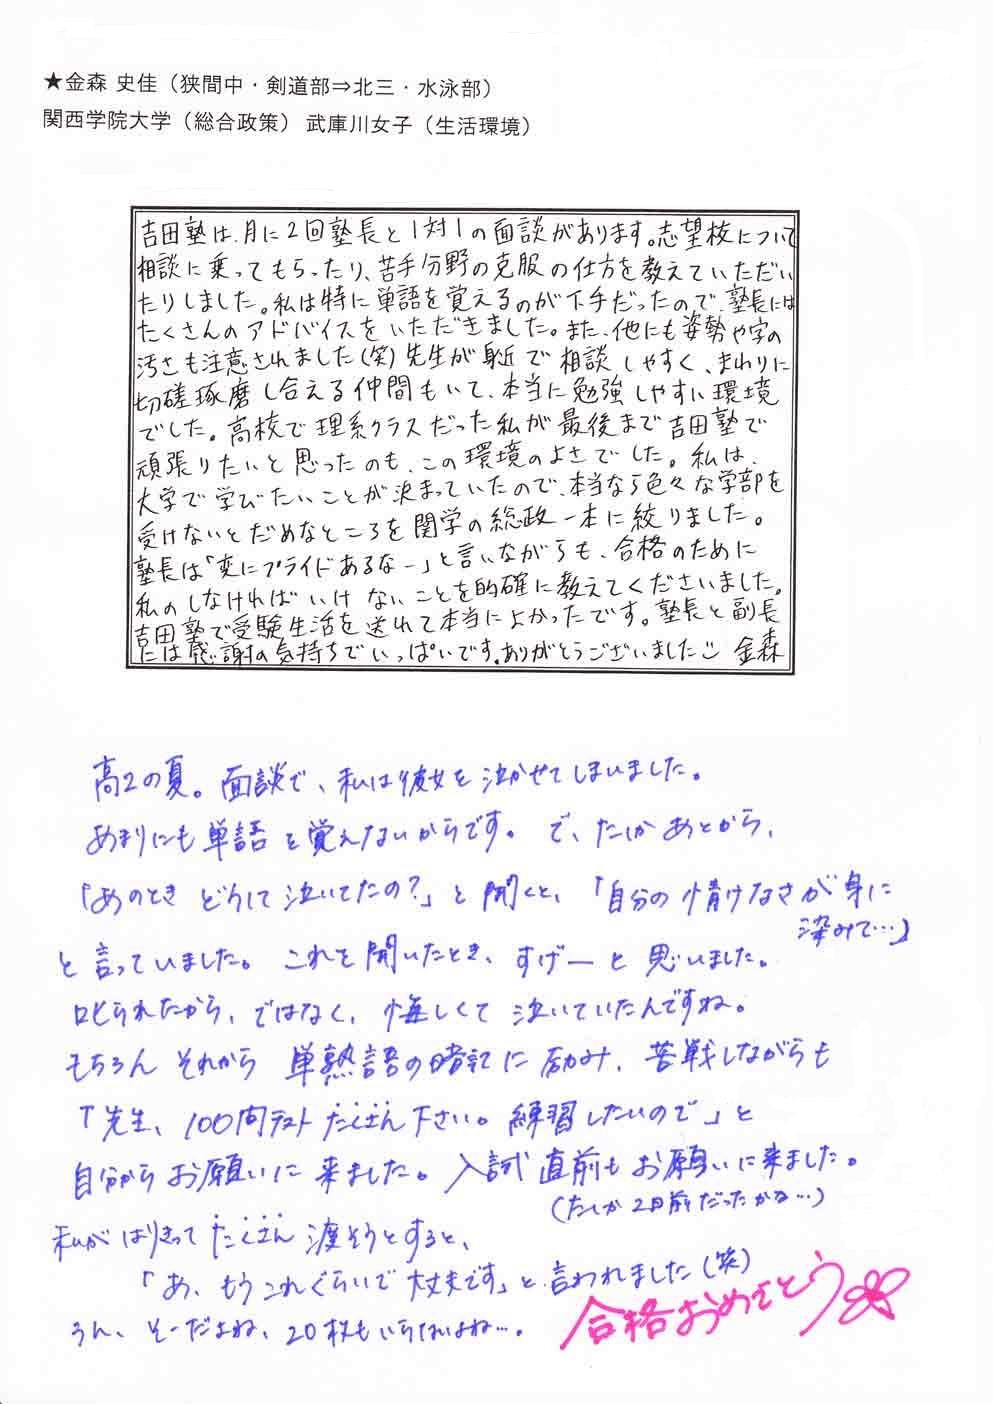 ★金森 史佳（狭間中・剣道部⇒北三・水泳部）
関西学院大学（総合政策） 武庫川女子（生活環境）
吉田塾は、月に2回塾長と1対1の面談があります。志望校について
相談に乗ってもらったり、苦手分野の克服の仕方を教えていただい
たりしました。私は特に単語を覚えるのが下手だったので、塾長には
たくさんのアドバイスをいただきました。また、他にも姿勢や字の
汚さも注意されました(笑)先生が身近で相談しやすく、まわりに
切磋琢磨し合える仲間もいて、本当に勉強しやすい環境
でした。高校で理系クラスだった私が最後まで吉田塾で
頑張りたいと思ったのも、この環境のよさでした。私は、
大学で学びたいことが決まっていたので、本当なら色々な学部を
受けないとだめなところを関学の総政一本に絞りました。
塾長は「変にプライドあるなー」と言いながらも、合格のために
私のしなければいけないことを的確に教えてくださいました。
吉田塾で受験生活を送れて本当によかったです。塾長と副長
には感謝の気持ちでいっぱいです。ありがとうございました 金森
高2の夏。面談で、私は彼女を泣かせてしまいました。
あまりにも単語を覚えないからです。で、たしかあとから、
「あのときどうして泣いてたの?」と聞くと、「自分の情けなさが身に
染みて…」
と言っていました。これを聞いたとき、すげーと思いました。
叱られたから、ではなく、悔しくて泣いていたんですね。
もちろんそれから単熟語の暗記に励み、苦戦しながらも
「先生、100問テストたくさん下さい。練習したいので」と
自分からお願いに来ました。入試直前もお願いに来ました。
(たしか2日前だったかな…)
私がはりきってたくさん渡そうとすると、
「あ、もうこれぐらいで大丈夫です」と言われました(笑)
うん、そーだよね、20枚もいらないよね…。
合格おめでとう